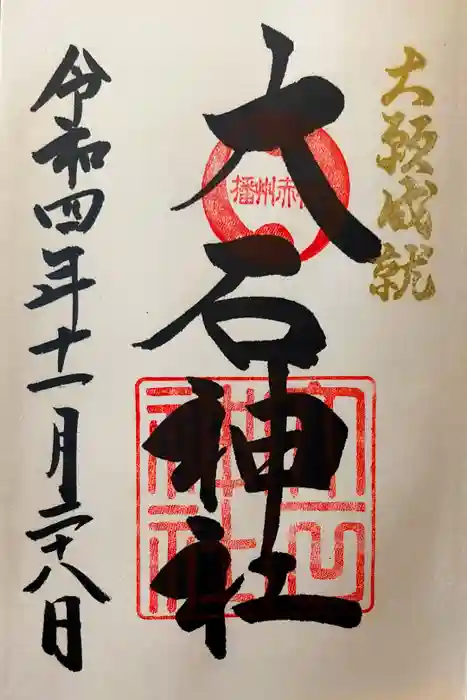 大願成就
大石神社
播州赤
大石神社
令和四年十一月二十八日